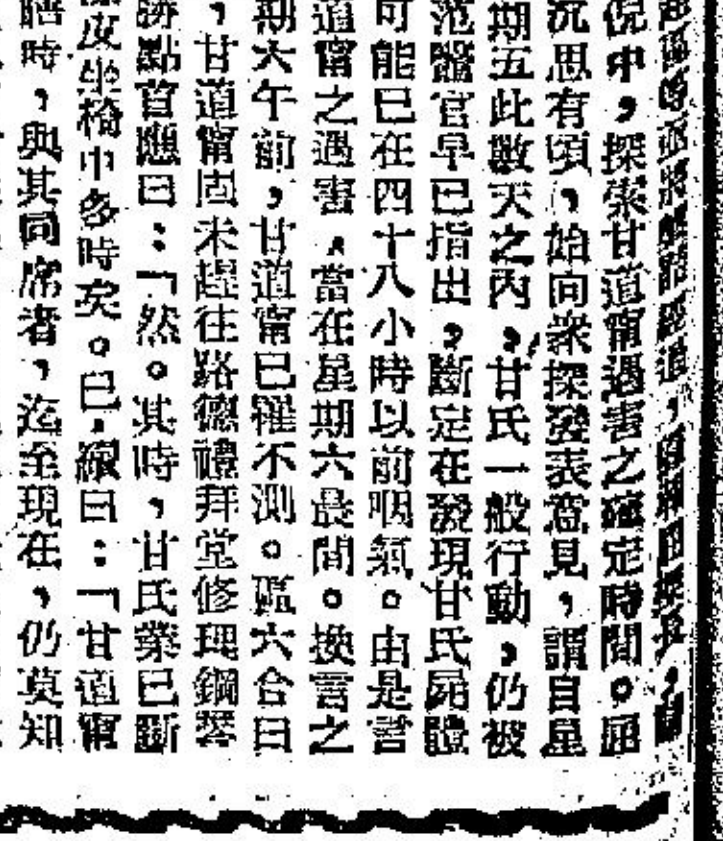 倪中，探索甘道甯遇害之確定時間。屈
沉思有頃，始向衆探發表意見，謂自星
期五此數天之內，甘氏一般行動，仍被
范醫官早已指出，斷定在發現甘氏屍體
可能已在四十八小時以前咽氣。由是言
道甯之遇害，當在星期六晨間。換言之
期六午前，甘道甯已罹不測。區六合曰
，甘道甯固未趕往路德禮拜堂修理鋼琴
點首應曰：「然。其時，甘氏業已斷
皮坐椅中多時矣。巳，續曰：「甘道甯
時，與其同席者，迄至現在，仍莫知